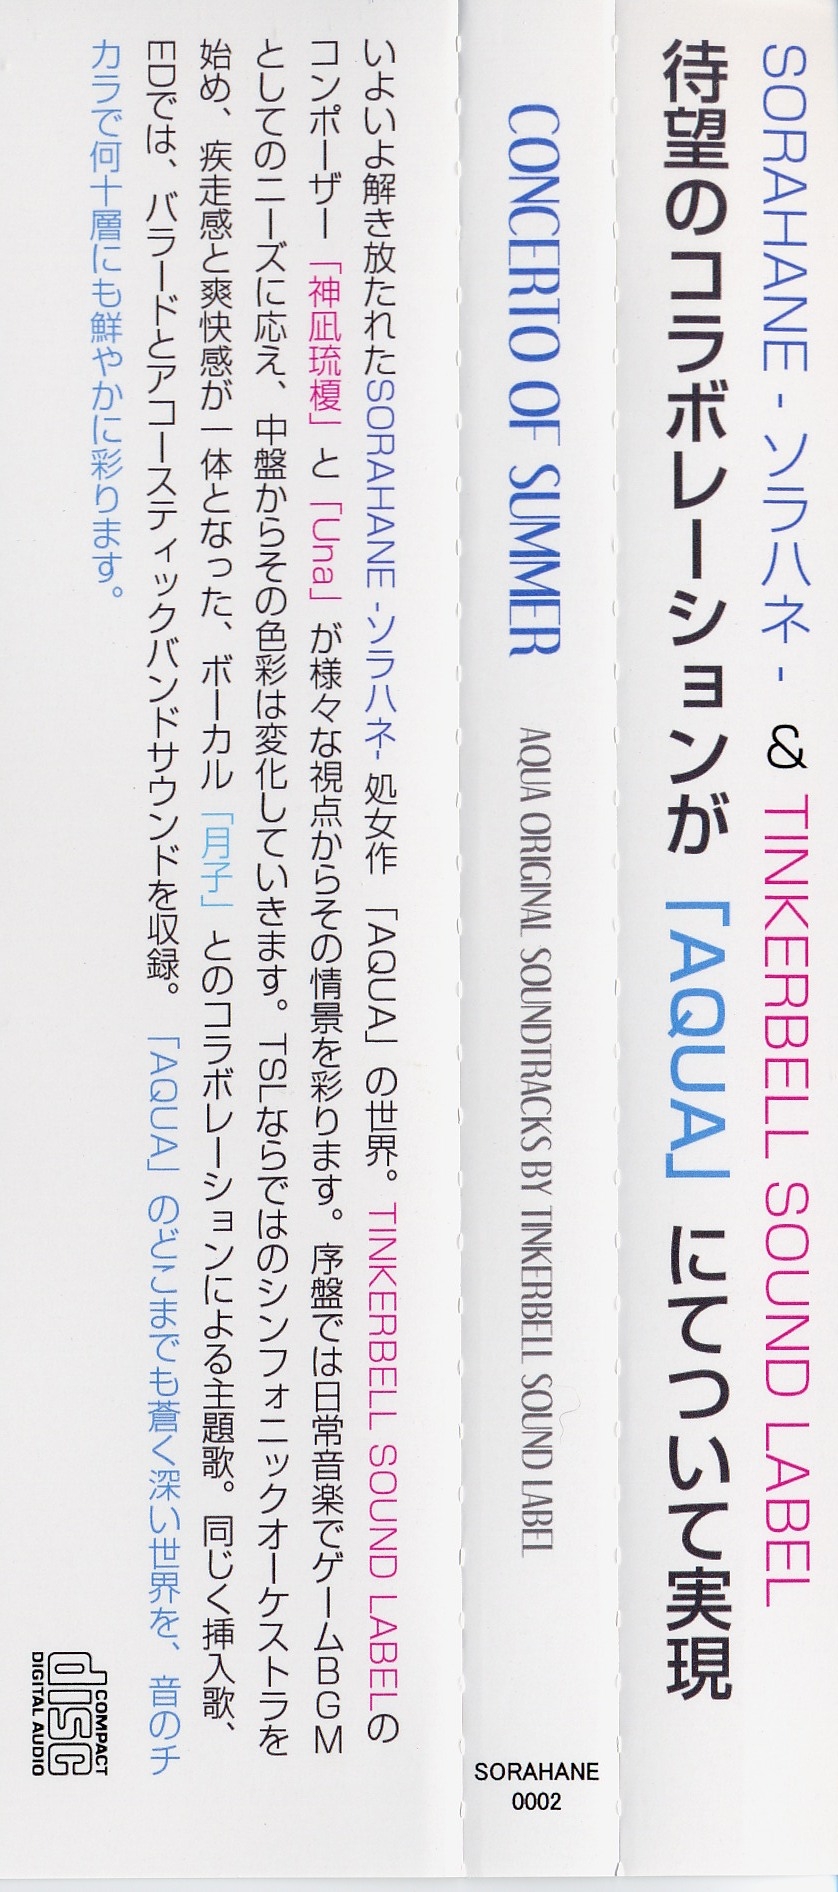 SORAHANE - ソラハネ - & TINKERBELL SOUND LABEL
待望のコラボレーションが「AQUA」にてついて実現
CONCERTO OF SUMMER AQUA ORIGINAL SOUNDTRACKS BY TINKERBELL SOUND LABEL
SORAHANE
0002
いよいよ解き放たれたSORAHANE -ソラハネ- 処女作 「AQUA」の世界。TINKERBELL SOUND LABELの
コンポーザー「神凪琉榎」と「Una」が様々な視点からその情景を彩ります。序盤では日常音楽でゲームBGM
としてのニーズに応え、中盤からその色彩は変化していきます。TSLならではのシンフォニックオーケストラを
始め、疾走感と爽快感が一体となった、ボーカル「月子」とのコラボレーションによる主題歌。同じく挿入歌、
EDでは、バラードとアコースティックバンドサウンドを収録。「AQUA」のどこまでも蒼く深い世界を、音のチ
カラで何十層にも鮮やかに彩ります。
COMPACT
disc
DIGITAL AUDIO